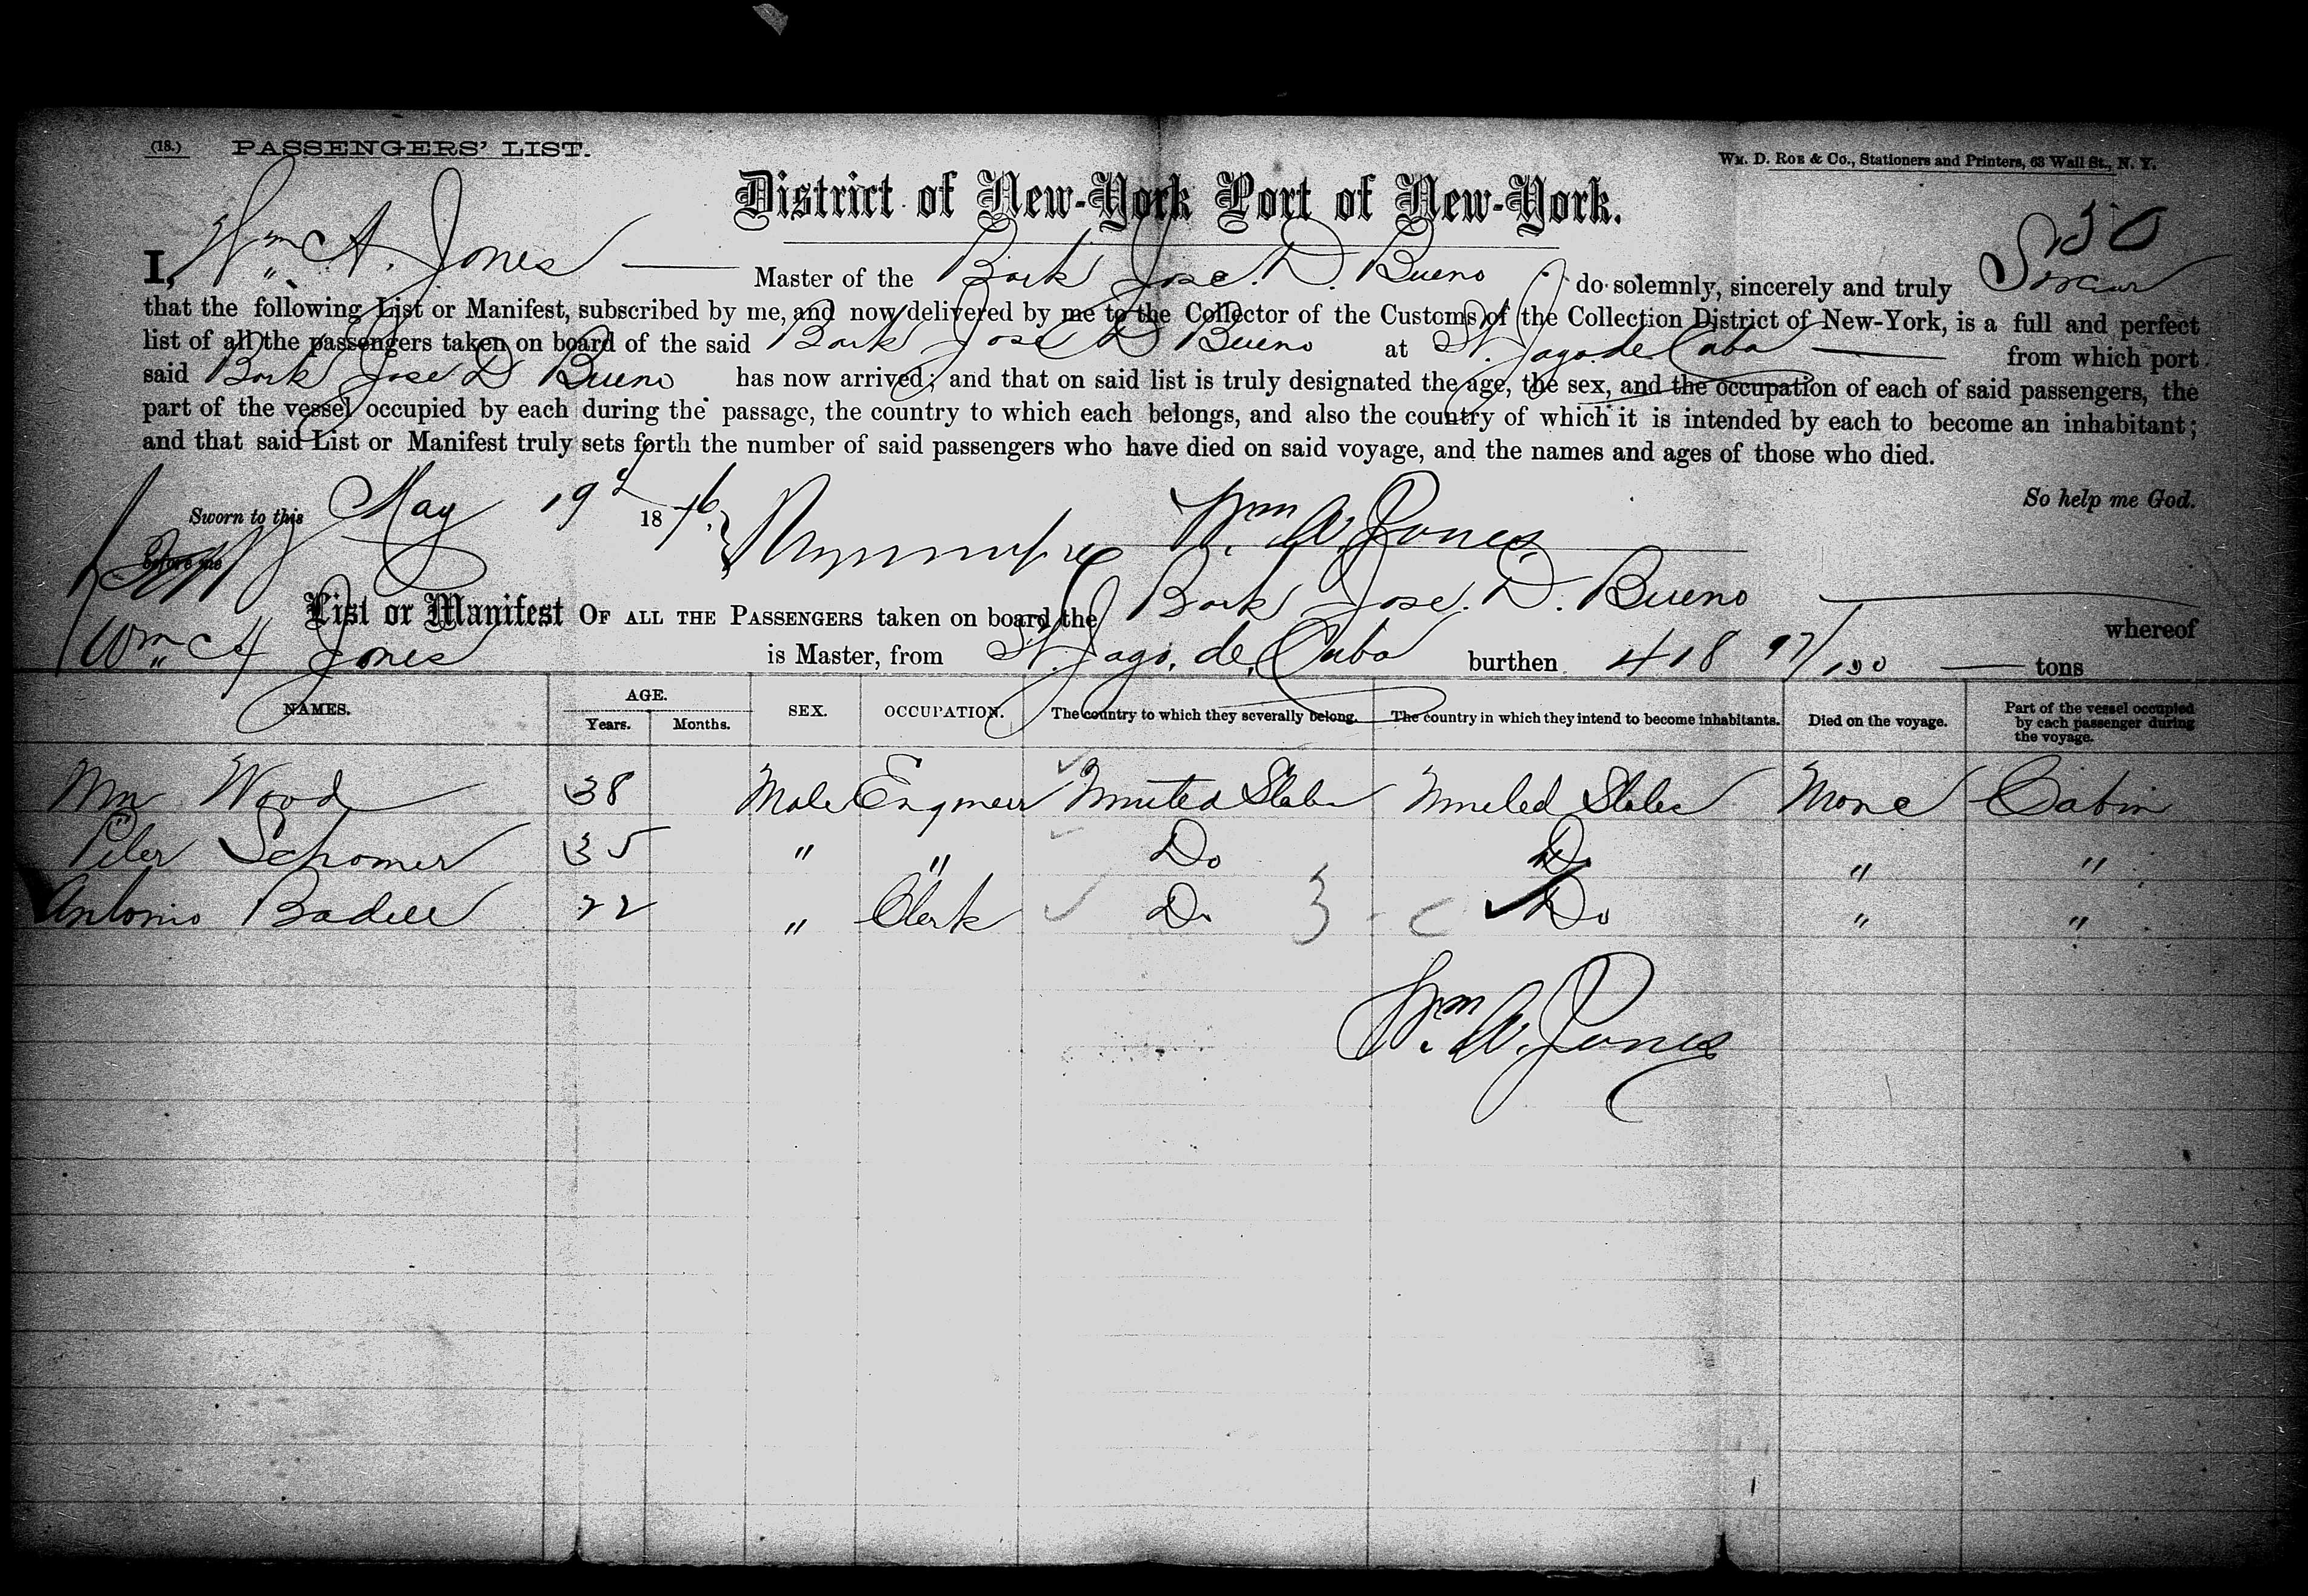 (18.) PASSENGERS' LIST.
WM. D. ROE & CO., Stationers and Printers, 63 Wall St., N. Y.
District of New-York Port of New-York.
I, Wm A. Jones Master of the Bark Jose. D. Bueno do solemnly, sincerely and truly Swear
that the following List or Manifest, subscribed by me, and now delivered by me to the Collector of the Customs of the Collection District of New-York, is a full and perfect
list of all the passengers taken on board of the said Bark Jose D Bueno at St. Jago. de Cuba from which port
said Bark Jose D Bueno has now arrived; and that on said list is truly designated the age, the sex, and the occupation of each of said passengers, the
part of the vessel occupied by each during the passage, the country to which each belongs, and also the country of which it is intended by each to become an inhabitant;
and that said List or Manifest truly sets forth the number of said passengers who have died on said voyage, and the names and ages of those who died.
So help me God.
Sworn to this May 19th 1876. Wm. A. Jones
before me
List or Manifest OF ALL THE PASSENGERS taken on board the Bark Jose. D. Bueno whereof
Wm A Jones is Master, from St. Jago. de, Cuba burthen 418 97/100 tons
NAMES. AGE. Years. Months. SEX. OCCUPATION. The country to which they severally belong. The country in which they intend to become inhabitants. Died on the voyage. Part of the vessel occupied by each passenger during the voyage.
Wm Wood 38 Male Engineer United States United States None Cabin
Peter Schomer 35 " " Do Do " "
Antonio Badell 22 " Clerk Do Do " "
Wm. A. Jones